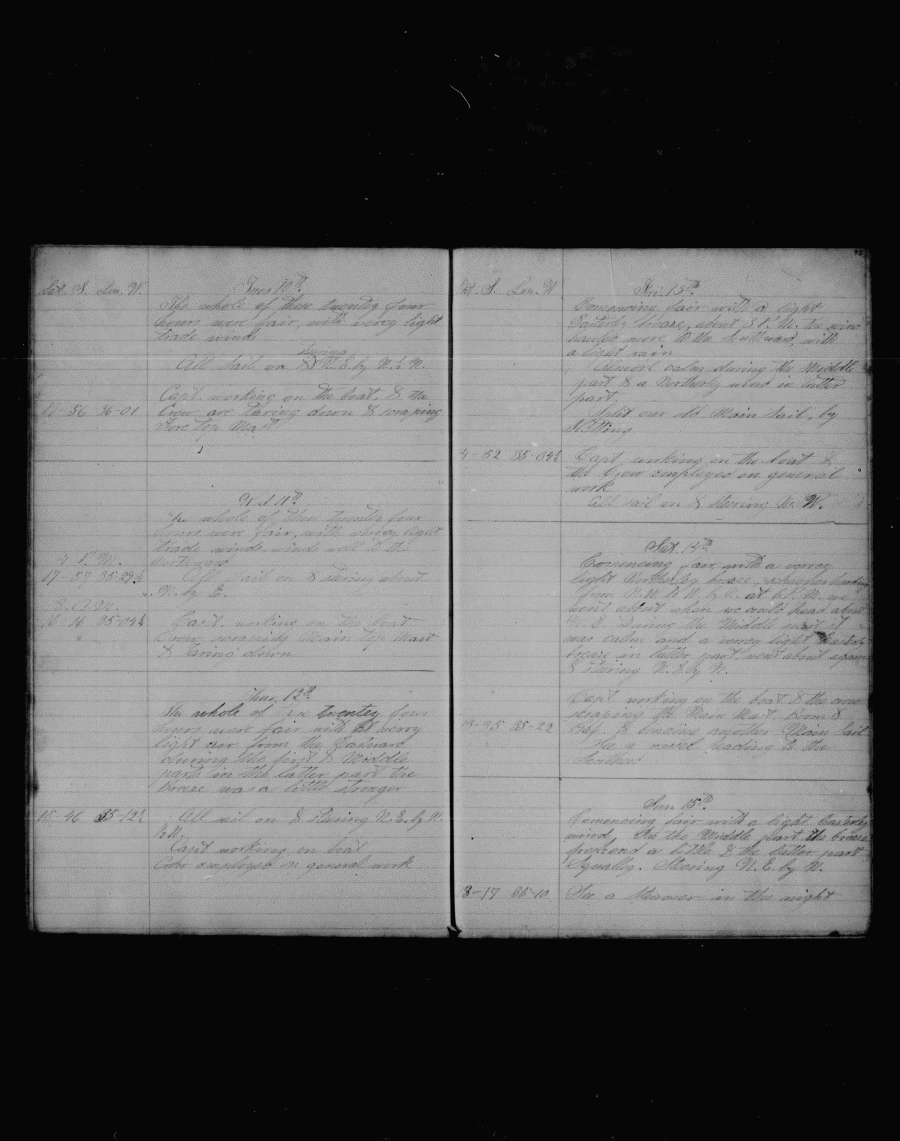 Lat. S. Lon. W. Tues 10th
The whole of these twenty four
hours were fair, with verry light
trade winds
steering
All sail on & N.E. by N. ½ N.
Capt. working on the boat, & the
36-01 Crew are taring down & scraping
Fore top Mast
Wed 11th
The whole of these twenty four
hours were fair, with verry light
trade winds, winds well to the
4 P.M. Northward
17-57 35-29½ All sail on & stering about
N. by E.
8. A.M.
16 16 35-04½ Capt. working on the boat
Crew scraping Main top Mast
& taring down
Thur 12th
The whole of the twentey four
hours were fair with a verry
light air from the Eastward
during the first & Middle
parts in the latter part the
breeze was a little stronger
15-46 35-12½ All sail on & stearing N.E. by N.
½ N.
Capt working on boat
Crew employed on general work
Lat. S. Lon. W Fri. 13th
Comencing fair with a light
Easterly breeze, about 8 P.M. the wind
hauled more to the Southward, with
a light rain
Almost calm during the Middle
part & a Northerly wind in latter
part.
Split our old Main Sail, by
Slatting
4-52 35-04½ Capt working on the boat &
the Crew employed on general
work
All sail on & stering N. W.
Sat. 14th
Comencing fair with a verry
light Northerley breeze,
from N.N.W. at 6 P.M. we
went about when we could head about
N. E. During the Middle part it
was calm and a verry light
breeze in latter part went about again
& stearing N.E. by N.
Capt working on the boat & the crew
scraping the Main Mast, Boom &
35-22 Gaf, & bending another Main Sail
See a vessel heading to the
Southard
Sun 15th
Comencing fair with a light Easterly
wind, In the Middle part the breeze
freshend a little & the latter part
Squally. Steering N.E. by N.
13-17 35-10 See a steamer in the night